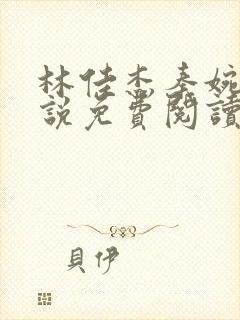 林佳杰秦婉
說免費閱讀
貝伊